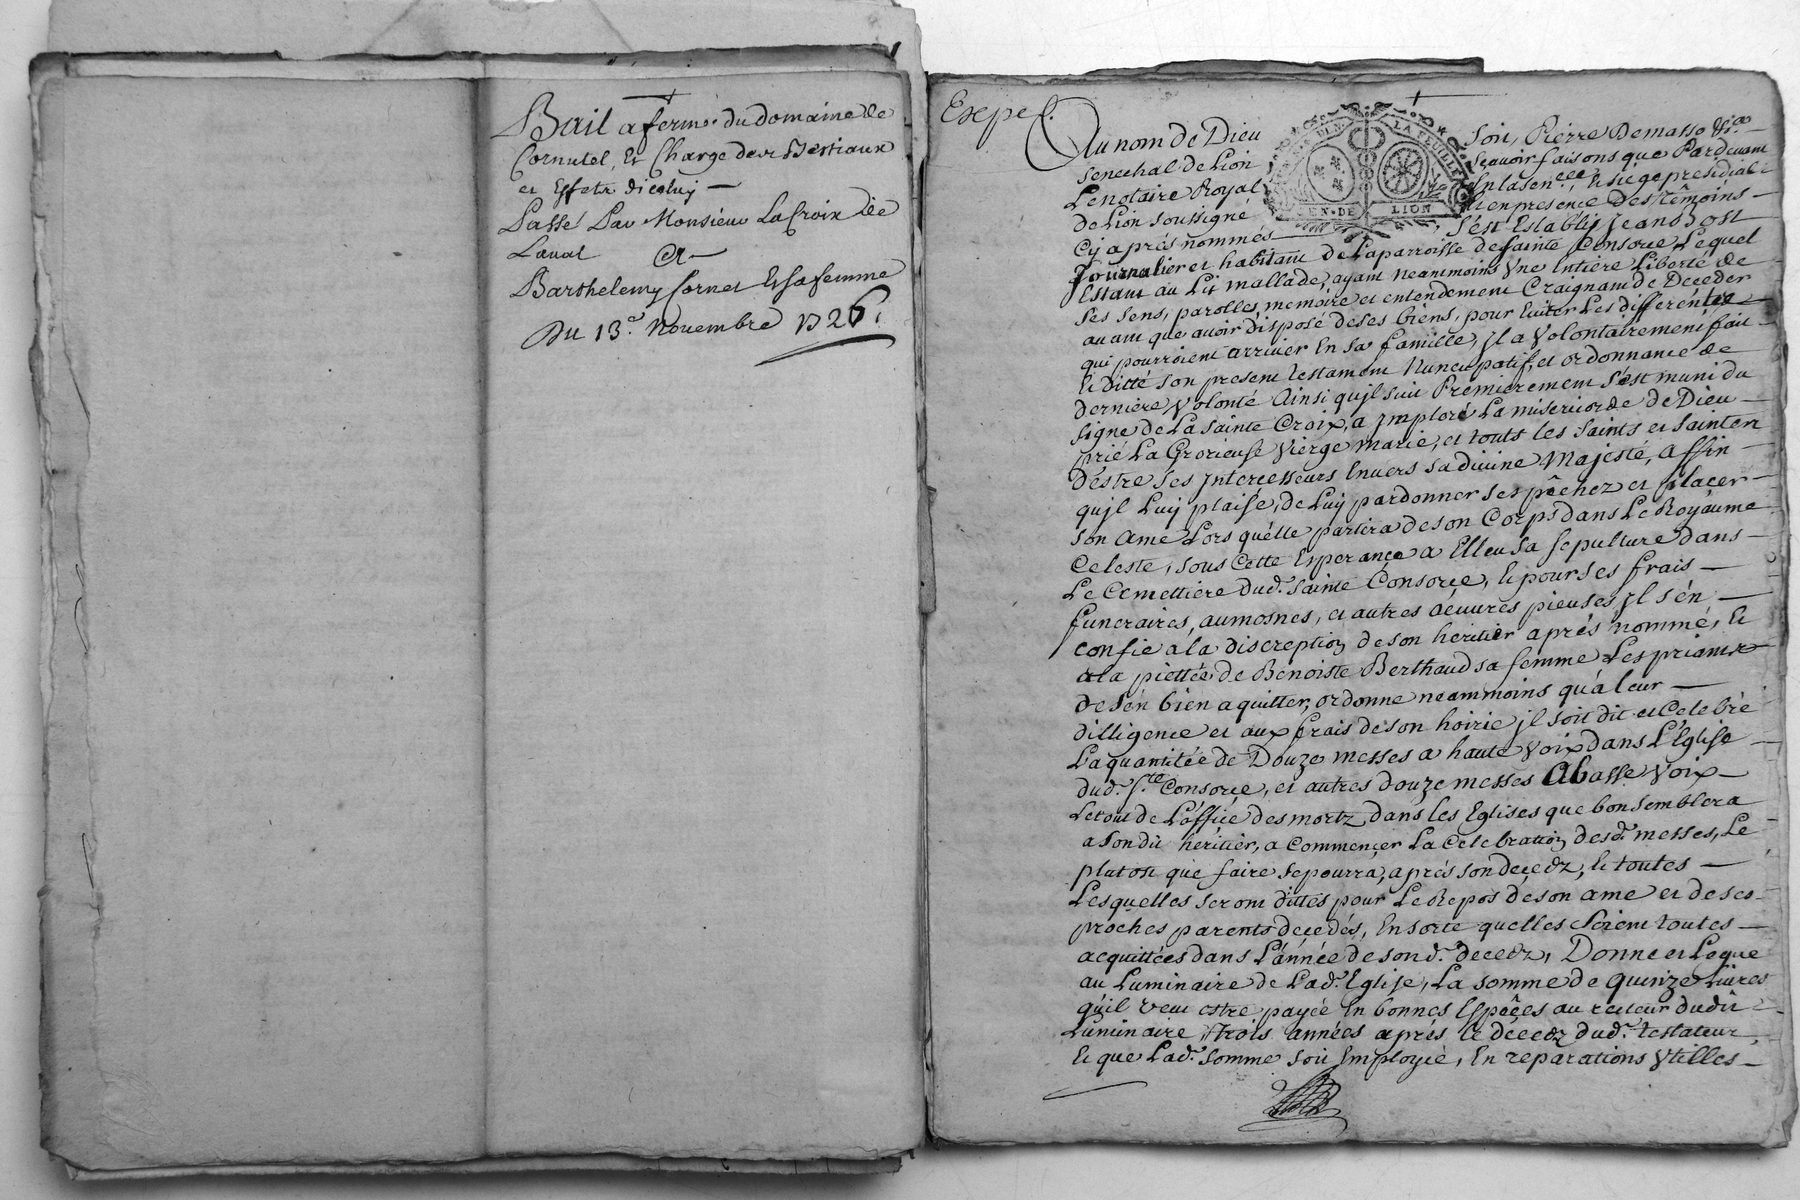 Bail a ferme du domaine de
Cornutel, Et Charge des Bestiaux
et Effets diceluy —
Passé Par Monsieur LaCroix de
Laval A —
Barthelemy Cornet Et sa femme
Du 13.e Novembre 1726.
Expe.
Au nom de Dieu Soit, Pierre Demasso &.a
senechal de Lion Scavoir faisons que Pardevant
Le notaire Royal En la sen.cée, et siege presidial
de Lion soussigné et en presence Des Têmoins —
Cy aprés nommés S'est Estably Jean
UN LA FEUILLE
EN · DE LION
Journalier et habitant de La parroisse de sainte Consorce, Lequel
Estant au Lit mallade, ayant neantmoins Vne Entiere Liberté de
ses sens, parolles, memoire et entendement Craignant de Deceder
avant que avoir disposé de ses biens, pour Eviter Les differentes
qui pourroient arriver En sa famille, jl a Volontairement fait —
Et Dicté son present testament Nuncupatif, et ordonnance de
derniere Volonté Ainsi qujl suit Premierement s'est muni du
signe de La sainte Croix, a jmploré La misericorde de Dieu —
prié La Glorieuse Vierge marie, et touts les saints et saintes
D'éstre sés jntercesseurs Envers sa divine Majesté, affin —
qujl Luy plaise, de Luy pardonner ses pêchez et placer —
son ame Lors quélle partira de son Corps dans Le Royaume
Celeste, sous Cette Esperance a Elleu sa sepulture dans —
Le Cemettiere dud. sainte Consorce, Et pour ses frais —
funeraires, aumosnes, et autres aéuvres pieuses jl s'én —
confie a la discreption de son heritier aprés nommé, Et
a la piettée de Benoiste Berthaud sa femme Les priants
de s'én bien aquitter, ordonne neammoins qu'a leur —
dilligence et aux frais de son hoirie jl soit dit et Celebré
La quantitée de Douze messes a haute voix dans L'Eglise —
dud. S.te Consorce, et autres douze messes Abasse Voix —
Le tout de L'office des mortz, dans les Eglises que bon semblera
a son dit héritier, a Commencer La Celebration desd. messes, Le
plutost que faire se pourra, aprés son decedz, Et toutes —
Lesquelles seront dittes pour Le Repos de son ame et de ses
proches parents decedés, En sorte quelles soient toutes —
acquittées dans L'année de son d. decedz, Donne et Legue
au Luminaire de Lad. Eglise, La somme de quinze Livres
qu'il veut estre payée En bonnes Espêces au recteur dudit
Luminaire trois années aprés le décedz dud. testateur,
Et que Lad. somme soit Employée, En reparations Vtilles —